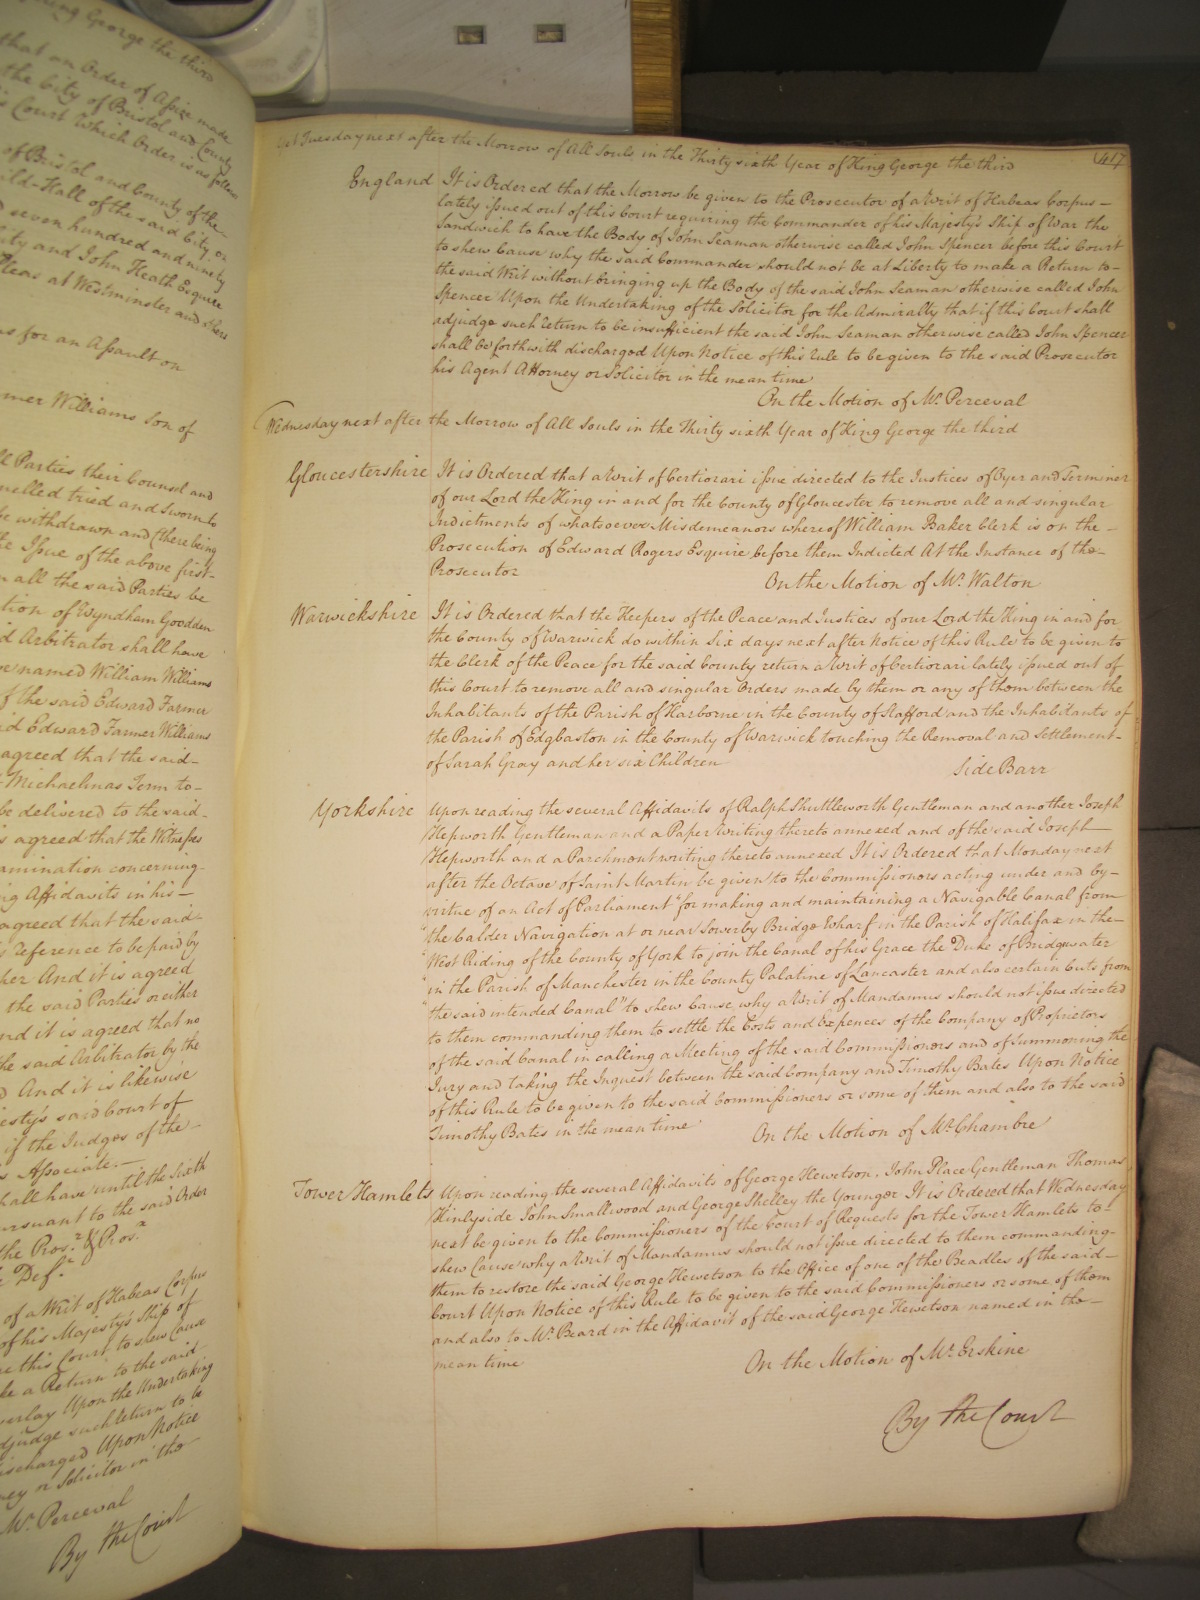 ring George the third
that an Order of Assize made
the City of Bristol and County
is Court which Order is as follows
of Bristol and County of the
ild-Hall of the said City, on
d seven hundred and ninety
City and John Heath Esquire
Pleas at Westminster and others
as for an Assault on
mer Williams Son of
ll Parties their Counsel and
nelled tried and Sworn to
be withdrawn and (there being
he Issue of the above first-
n all the said Parties be
tion of Wyndham Goodden
d Arbitrator shall have
ve named William Williams
f the said Edward Farmer
id Edward Farmer Williams
agreed that the said-
Michaelmas Term to-
be delivered to the said-
is agreed that the Witnesses
amination concerning-
ng Affidavits in his-
agreed that the said-
Reference to be paid by
her And it is agreed
the said Parties or either
nd it is agreed that no
the said Arbitrator by the
And it is likewise
jesty's said Court of
if the Judges of the-
s Associate.—
shall have until the sixth
ursuant to the said Order
the Pros.r & Pros.x
Def.t
of a Writ of Habeas Corpus
of his Majesty's Ship of
re this Court to shew Cause
ke a Return to the said
verlay Upon the Undertaking
djudge such Return to be
ischarged Upon Notice
ney or Solicitor in the
Mr. Perceval
By the Court
Yet Tuesday next after the Morrow of All Souls in the Thirty sixth Year of King George the third
417
England It is Ordered that the Morrow be given to the Prosecutor of a Writ of Habeas Corpus—
lately issued out of this Court requiring the Commander of his Majesty's Ship of War the
Sandwich to have the Body of John Seaman otherwise called John Spencer before this Court
to shew Cause why the said Commander should not be at Liberty to make a Return to-
the said Writ without bringing up the Body of the said John Seaman otherwise called John
Spencer Upon the Undertaking of the Solicitor for the Admiralty that if this Court shall
adjudge such Return to be insufficient the said John Seaman otherwise called John Spencer
shall be forthwith discharged Upon Notice of this Rule to be given to the said Prosecutor
his Agent Attorney or Solicitor in the mean time
On the Motion of Mr. Perceval
Wednesday next after the Morrow of All Souls in the Thirty sixth Year of King George the third
Gloucestershire It is Ordered that a Writ of Certiorari issue directed to the Justices of Oyer and Terminer
of our Lord the King in and for the County of Gloucester to remove all and singular
Indictments of whatsoever Misdemeanors whereof William Baker Clerk is on the-
Prosecution of Edward Rogers Esquire before them Indicted At the Instance of the-
Prosecutor
On the Motion of Mr. Walton
Warwickshire It is Ordered that the Keepers of the Peace and Justices of our Lord the King in and for
the County of Warwick do within Six days next after Notice of this Rule to be given to
the Clerk of the Peace for the said County return a Writ of Certiorari lately issued out of
this Court to remove all and singular Orders made by them or any of them between the
Inhabitants of the Parish of Harborne in the County of Stafford and the Inhabitants of
the Parish of Edgbaston in the County of Warwick touching the Removal and Settlement-
of Sarah Gray and her six Children
Side Barr
Yorkshire Upon reading the several Affidavits of Ralph Shuttleworth Gentleman and another Joseph
Hepworth Gentleman and a Paper Writing thereto annexed and of the said Joseph—
Hepworth and a Parchment writing thereto annexed It is Ordered that Monday next
after the Octave of Saint Martin be given to the Commissioners acting under and by-
virtue of an Act of Parliament "for making and maintaining a Navigable Canal from
"the Calder Navigation at or near Sowerby Bridge Wharf in the Parish of Halifax in the-
"West Riding of the County of York to join the Canal of his Grace the Duke of Bridgewater
"in the Parish of Manchester in the County Palatine of Lancaster and also certain Cuts from
"the said intended Canal" to shew Cause why a Writ of Mandamus should not issue directed
to them commanding them to settle the Costs and Expences of the Company of Proprietors
of the said Canal in calling a Meeting of the said Commissioners and of Summoning the
Jury and taking the Inquest between the said Company and Timothy Bates Upon Notice
of this Rule to be given to the said Commissioners or some of them and also to the said
Timothy Bates in the mean time
On the Motion of Mr. Chambre
Tower Hamlets Upon reading the several Affidavits of George Hewetson, John Place Gentleman Thomas
Hinlyside John Smallwood and George Shelley the Younger It is Ordered that Wednesday
next be given to the Commissioners of the Court of Requests for the Tower Hamlets to-
shew Cause why a Writ of Mandamus should not issue directed to them commanding-
them to restore the said George Hewetson to the Office of one of the Beadles of the said-
Court Upon Notice of this Rule to be given to the said Commissioners or some of them
and also to Mr. Beard in the Affidavit of the said George Hewetson named in the-
mean time
On the Motion of Mr. Erskine
By the Court